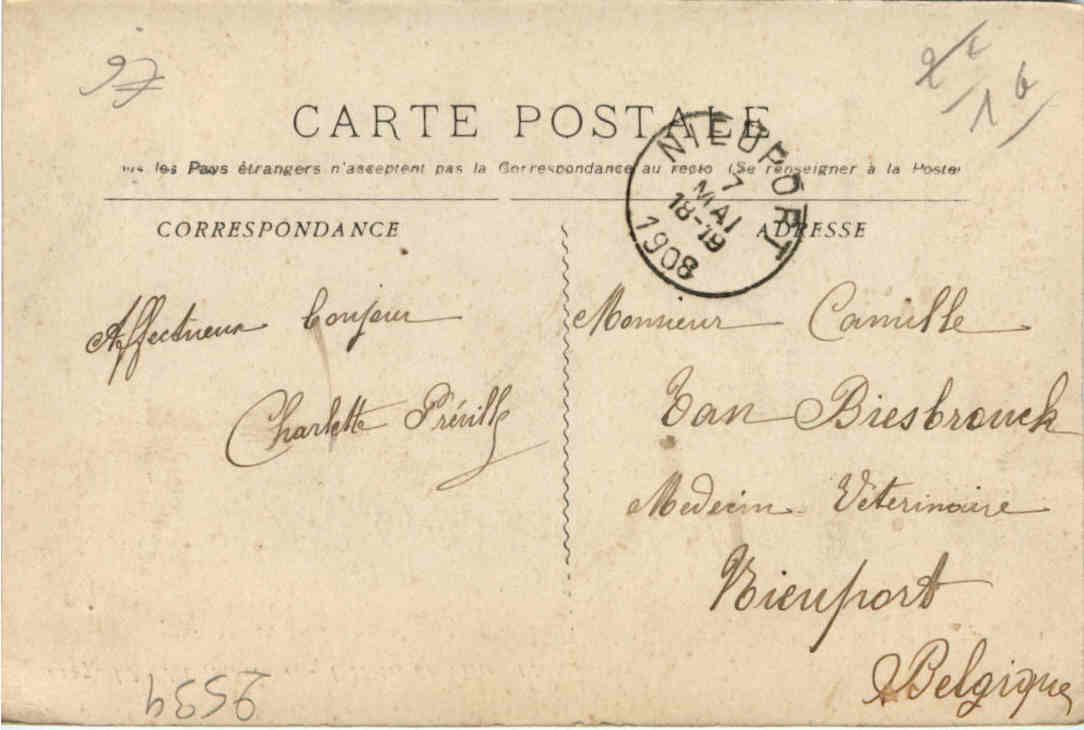 97
2 €
1 6
CARTE POSTALE
les Pays étrangers n'acceptent pas la Correspondance au recto (Se renseigner à la Poste
NIEUPORT
7
MAI
18-19
1908
CORRESPONDANCE
ADRESSE
Affectueux bonjour
Charlette Préville
Monsieur Camille
Van Biesbrouck
Medecin Véterinaire
Nieuport
Belgique